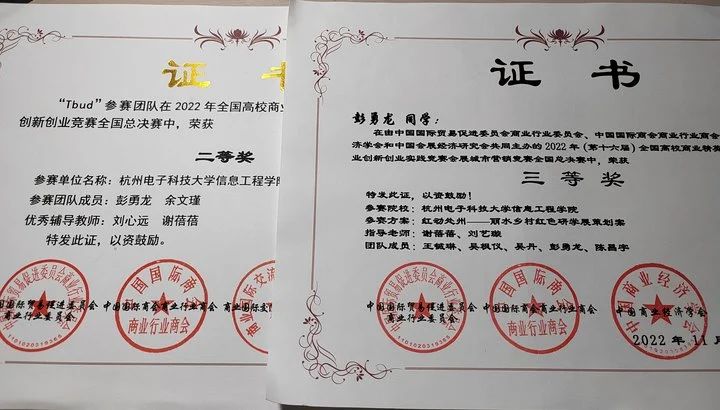 证书
"Tbud"参赛团队在2022年全国高校商业
创新创业竞赛全国总决赛中，荣获
二等奖
参赛单位名称：杭州电子科技大学信息工程学院
参赛团队成员：彭勇龙 余文瑾
优秀辅导教师：刘心远 谢蓓蓓
特发此证，以资鼓励。
中国国际贸易促进委员会 中国国际商会商业行业商会
商业行业委员会
商业行业商会
1101020319365
证书
彭勇龙 同学：
在由中国国际贸易促进委员会商业行业委员会、中国国际商会商业行业商会
济学会和中国会展经济研究会共同主办的2022年（第十六届）全国高校商业精英
业创新创业实践竞赛会展城市营销竞赛全国总决赛中，荣获
三等奖
特发此证，以资鼓励！
参赛院校：杭州电子科技大学信息工程学院
参赛方案：红动处州——丽水乡村红色研学展策划案
指导老师：谢蓓蓓、刘艺璇
团队成员：王毓琳、吴枫仪、吴丹、彭勇龙、陈昌宇
中国国际贸易促进委员会 中国国际商会商业行业商会 中国商业经济学会
商业行业委员会
商业行业商会
中国商业经济学会
2022年11月